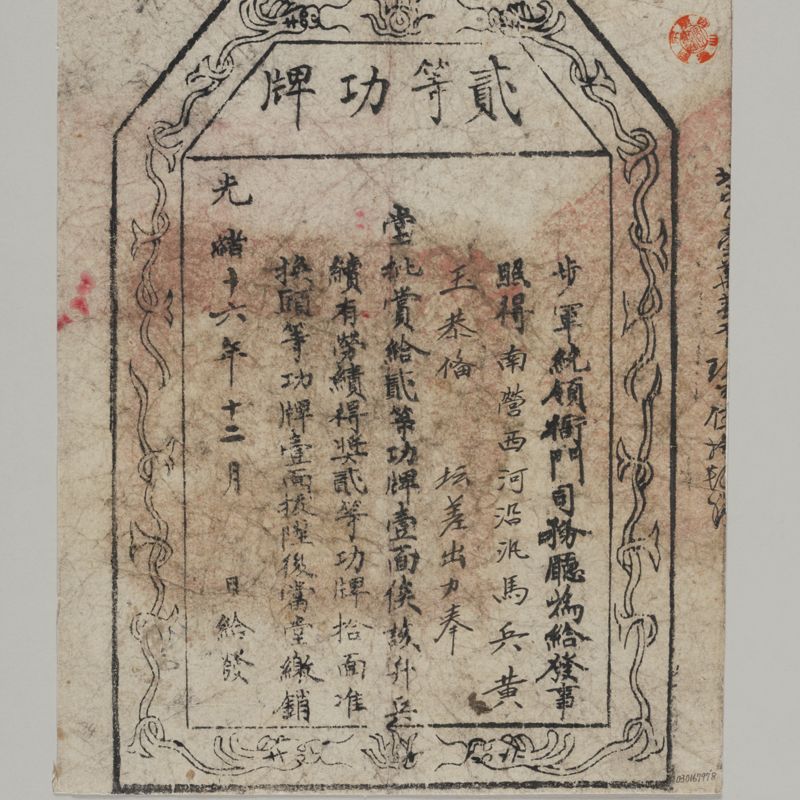 貳等功牌
步軍統領衙門司務廳為給發事
照得南營西河沿汛馬兵黃
王恭倫 坛差出力奉
堂批賞給貳等功牌壹面俟該弁兵
續有勞績得獎貳等功牌拾面准
換頭等功牌壹面拔陞後當堂繳銷
光緒十六年十二月 日給發
030167978